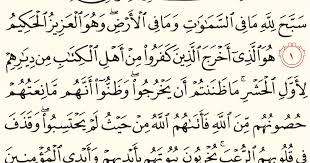 سَبَّحَ لِلَّهِ مَا فِى ٱلسَّمَٰوَٰتِ وَمَا فِى ٱلْأَرْضِ ۖ وَهُوَ ٱلْعَزِيزُ ٱلْحَكِيمُ
١ هُوَ ٱلَّذِىٓ أَخْرَجَ ٱلَّذِينَ كَفَرُوا۟ مِنْ أَهْلِ ٱلْكِتَٰبِ مِن دِيَٰرِهِمْ
لِأَوَّلِ ٱلْحَشْرِ ۚ مَا ظَنَنتُمْ أَن يَخْرُجُوا۟ ۖ وَظَنُّوٓا۟ أَنَّهُم مَّانِعَتُهُمْ
حُصُونُهُم مِّنَ ٱللَّهِ فَأَتَىٰهُمُ ٱللَّهُ مِنْ حَيْثُ لَمْ يَحْتَسِبُوا۟ ۖ وَقَذَفَ
فِى قُلُوبِهِمُ ٱلرُّعْبَ ۚ يُخْرِبُونَ بُيُوتَهُم بِأَيْدِيهِمْ وَأَيْدِى ٱلْمُؤْمِنِينَ